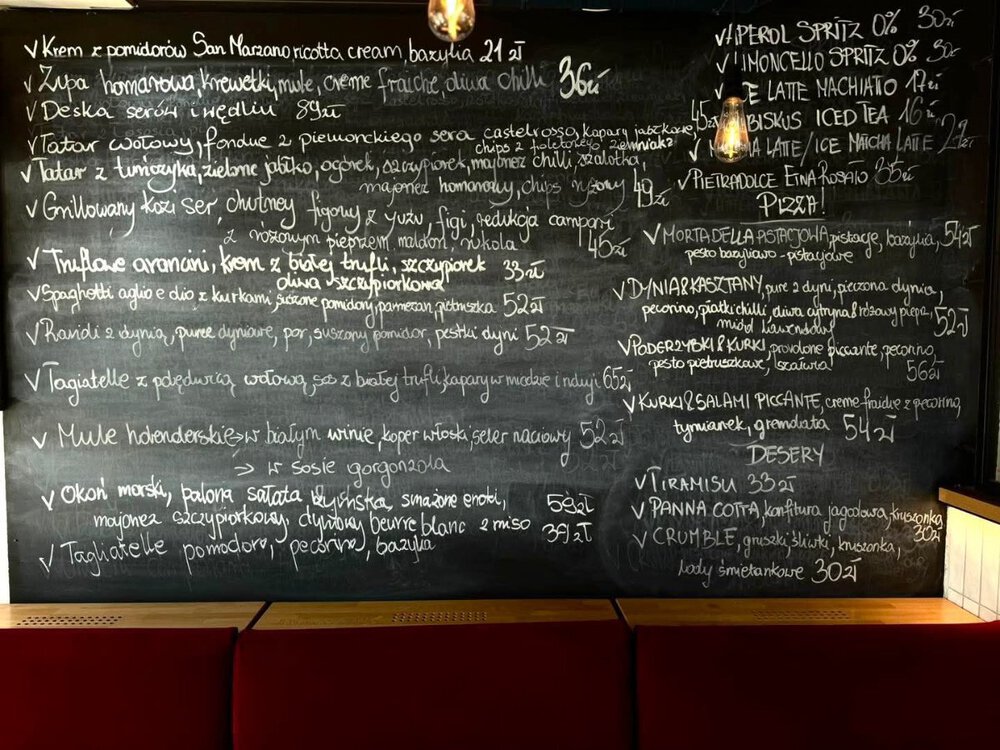 √ Krem z pomidorów San Marzano, ricotta cream, bazylia 21 zł
√ Zupa homarowa, krewetki, mule, creme fraiche, oliwa chilli 36zł
√ Deska serów i wędlin 89zł
√ Tatar wołowy, fondue z piemonckiego sera castelrosso, kapary jabłkowe, 45zł
chips z fioletowego ziemniaka
√ Tatar z tuńczyka, zielone jabłko, ogórek, szczypiorek, majonez chilli, szalotka,
majonez homarowy, chips ryżowy 49zł
√ Grillowany kozi ser, chutney figowy z yuzu, figi, redukcja campari
z różowym pieprzem, maldon, rukola 45zł
√ Truflowe arancini, krem z białej trufli, szczypiorek 33zł
oliwa szczypiorkowa
√ Spaghetti aglio e olio z kurkami, suszone pomidory, parmezan, pietruszka 52zł
√ Ravioli z dynią, puree dyniowe, por, suszony pomidor, pestki dyni 52zł
√ Tagiatelle z polędwicą wołową, sos z białej trufli, kapary w miodzie i nduji 65zł
√ Mule holenderskie → w białym winie, koper włoski, seler naciowy 52zł
⇒ w sosie gorgonzola
√ Okoń morski, palona sałata rzymska, smażone enoki, 59zł
majonez szczypiorkowy, dyniowy beurre blanc z miso
√ Tagliatelle pomodoro, pecorino, bazylia 39zł
√ APEROL SPRITZ 0% 30zł
√ LIMONCELLO SPRITZ 0% 30zł
ICE LATTE MACHIATO 17zł
ICED TEA 16zł
√ LATTE/ICE MATCHA LATTE 21zł
√ PIETRADOLCE ETNA ROSATO 35zł
PIZZA!
√ MORTADELLA PISTACJOWA, pistacje, bazylia, 54zł
pesto bazyliowo-pistacjowe
√ DYNIA & KASZTANY, pure z dyni, pieczona dynia,
pecorino, płatki chilli, oliwa cytryna & różowy pieprz, 52zł
miód lawendowy
√ PODGRZYBKI & KURKI, provolone piccante, pecorino,
pesto pietruszkowe, szałwia 56zł
√ KURKI & SALAMI PICCANTE, creme fraiche z pecorino,
tymianek, gremolata 54zł
DESERY
√ TIRAMISU 33zł
√ PANNA COTTA, konfitura jagodowa, kruszonka 30zł
√ CRUMBLE, gruszki, śliwki, kruszonka,
lody śmietankowe 30zł